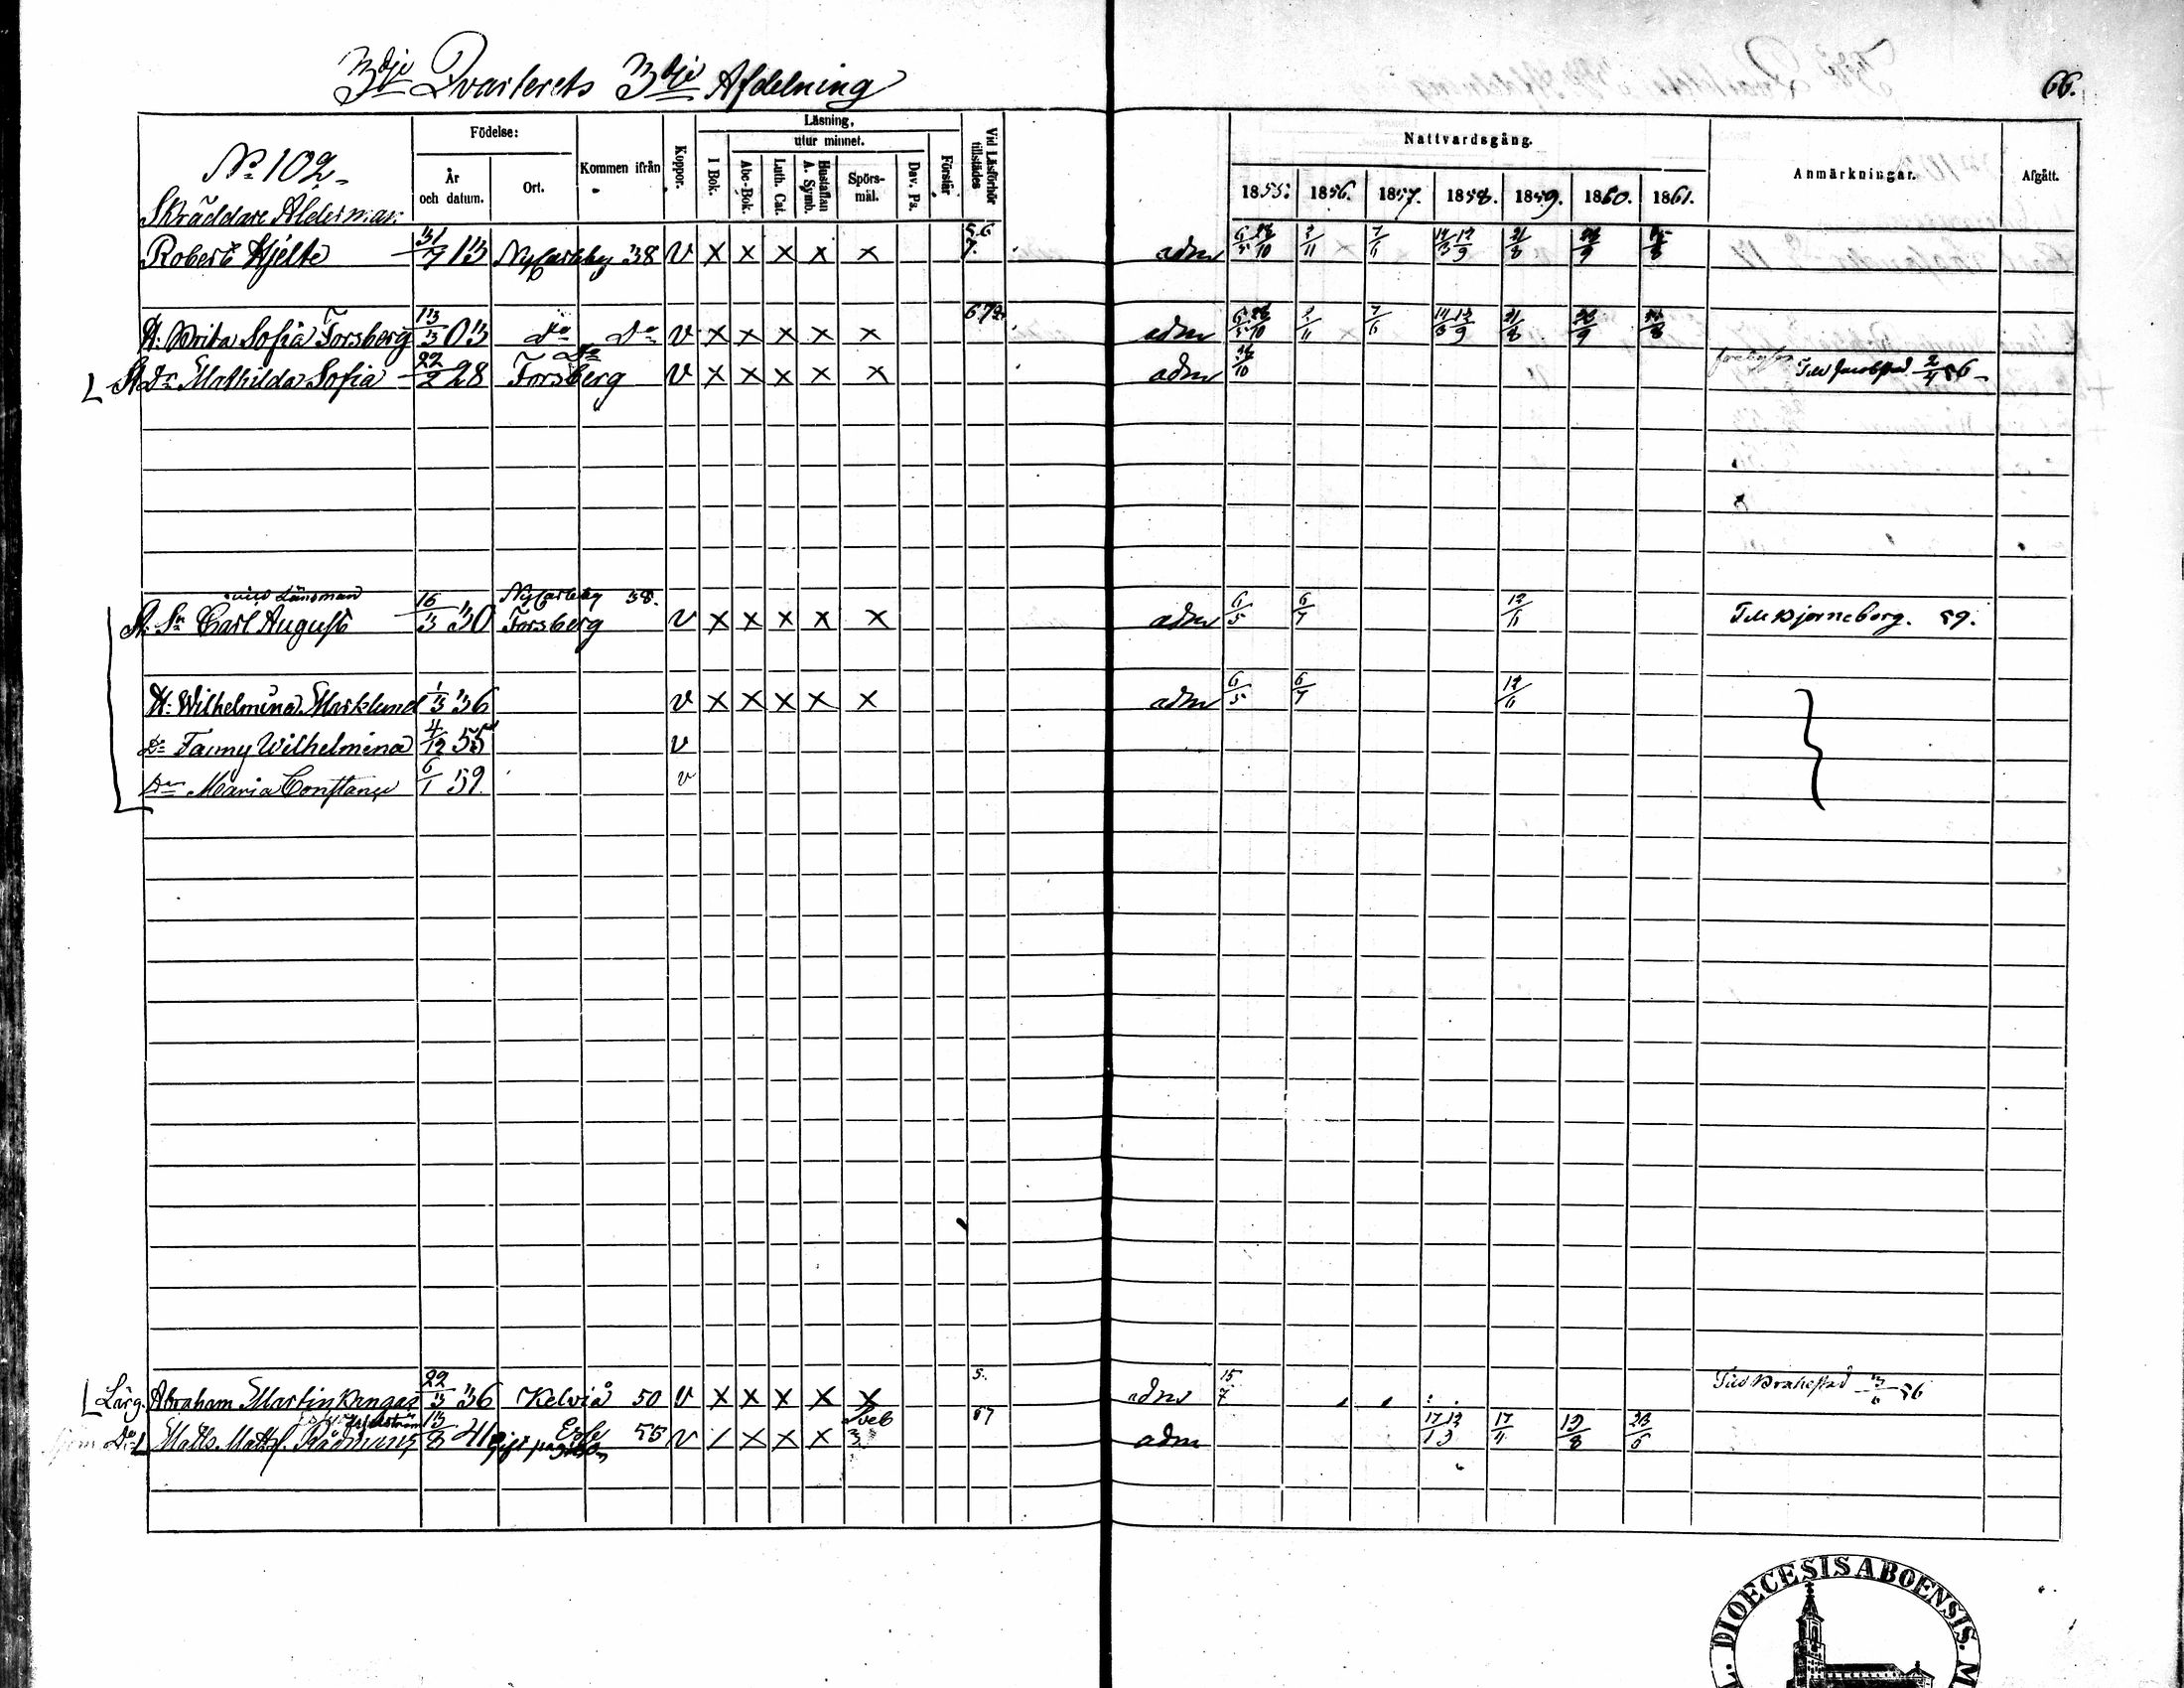 3dje Qvarterets 3dje Afdelning
66.
No 102.
Födelse:
År och datum.
Ort.
Kommen ifrån
Koppor.
Läsning,
utur minnet.
I Bok.
Abc-Bok.
Luth. Cat.
Hustaflan A. Symb.
Spörsmål.
Dav. Ps.
Förstår
Vid Läsförhör tillstädes
Nattvardsgång.
1855. 1856. 1857. 1858. 1859. 1860. 1861.
Anmärkningar.
Afgått.
Skräddare Ålderman
Robert Hjelte 31/7 13 Nycarleby 38 v × × × × × 5.6 7. adm 6/5 10 2/11 7/6 14/3 12/9 21/8 9 8
H: Brita Sofia Forsberg 13/3 03 do do v × × × × × 672 adm 6/5 10 2/11 7/6 14/3 12/9 21/8 9 8
do
St. Dr Mathilda Sofia 22/2 28 Forsberg v × × × × × adm 10 Till Jacobstad 2/4 56
Länsman Nycarleby 38.
St. Sn Carl August 16/3 30 Forsberg v × × × × × adm 6/5 6/7 12/6 Till Björneborg. 59.
H: Wilhelmina Marklund 1/3 36 v × × × × × adm 6/5 6/7 12/6
Dr Fanny Wilhelmina 4/12 55 v
Dr Maria Constance 6/1 59. v
Lärg. Abraham Martin Kangas 22/3 36 Kelviå 50 v × × × × × 5. adm 15/7 Till Brahestad 3/6 56
Do Matts Matts. 13/8 41 55 v / × × × 57 adm 17/13 17/4 19/8 23/6
DIOECESIS ABOENSIS. M